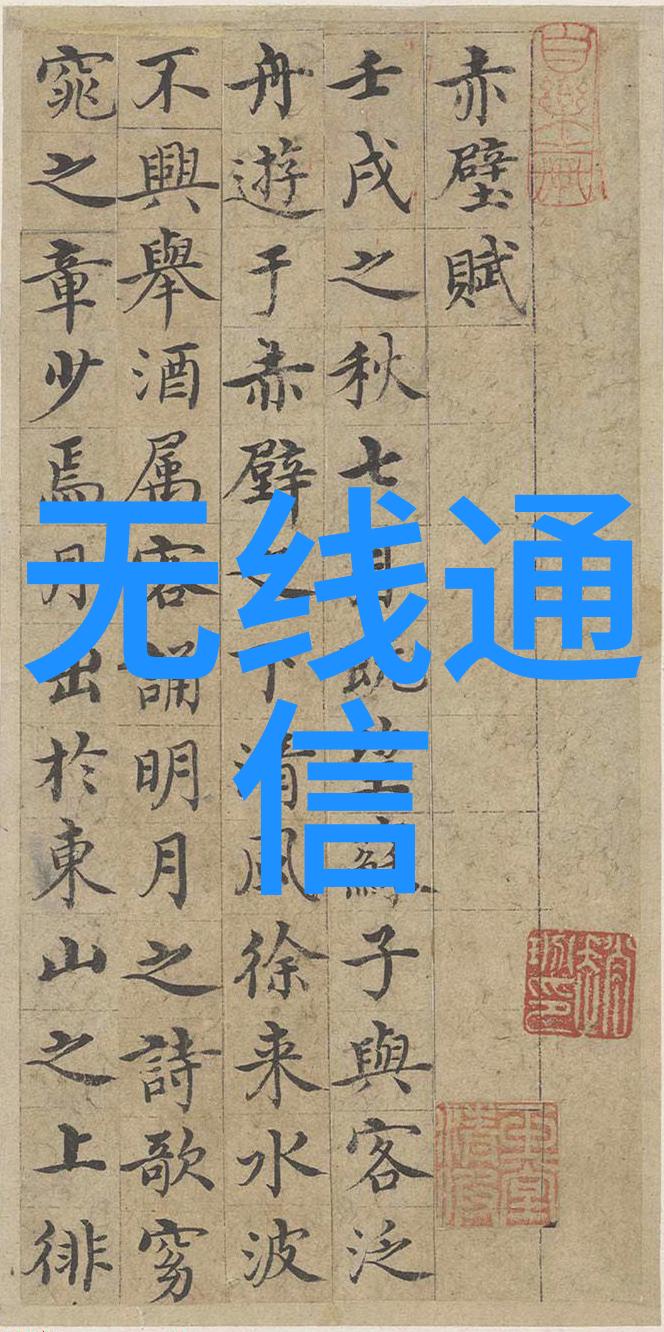 赤壁賦
壬戌之秋七月既望蘇子與客泛
舟遊于赤壁之下清風徐来水波
不興舉酒属客誦明月之詩歌窈
窕之章少焉月出於東山之上徘
无线通
信